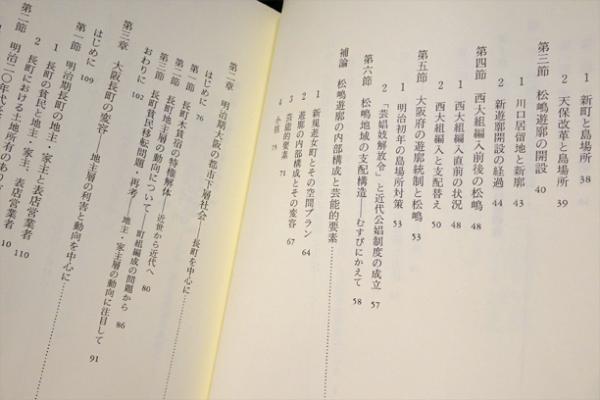 1 新町と島場所 38
2 天保改革と島場所 39
第三節 松嶋遊廓の開設 40
1 川口居留地と新廓 43
2 新遊廓開設の経過 44
第四節 西大組編入前後の松嶋 48
1 西大組編入直前の状況 48
2 西大組編入と支配替え 50
第五節 大阪府の遊廓統制と松嶋 53
1 明治初年の島場所対策 53
2 「芸娼妓解放令」と近代公娼制度の成立 57
第六節 松嶋地域の支配構造――むすびにかえて 58
補論 松嶋遊廓の内部構成と芸能的要素
1 新規遊女町とその空間プラン 64
2 遊廓の内部構成とその変容 67
3 芸能的要素 71
4 小括 75
第二章 明治期大阪の都市下層社会――長町を中心に
はじめに 76
第一節 長町木賃宿の特権解体――近世から近代へ 80
第二節 長町地主層の動向について――町組編成の問題から 86
第三節 長町貧民移転問題・再考――地主・家主層の動向に注目して 91
おわりに 102
第三章 大阪長町の変容――地主層の利害と動向を中心に
はじめに 109
第一節 明治期長町の地主・家主と表店営業者 110
1 長町の貧民と地主・家主、表店営業者 110
2 長町における土地所有のあり
第二節 明治二〇年代